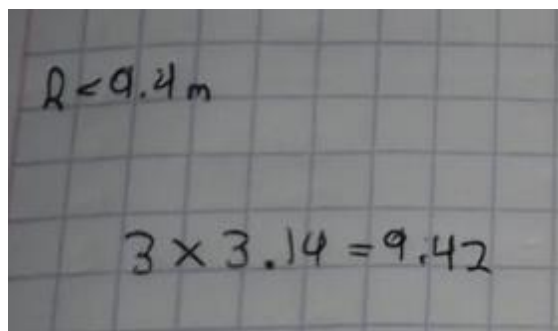 R < 9.4 m
3 × 3.14 = 9.42